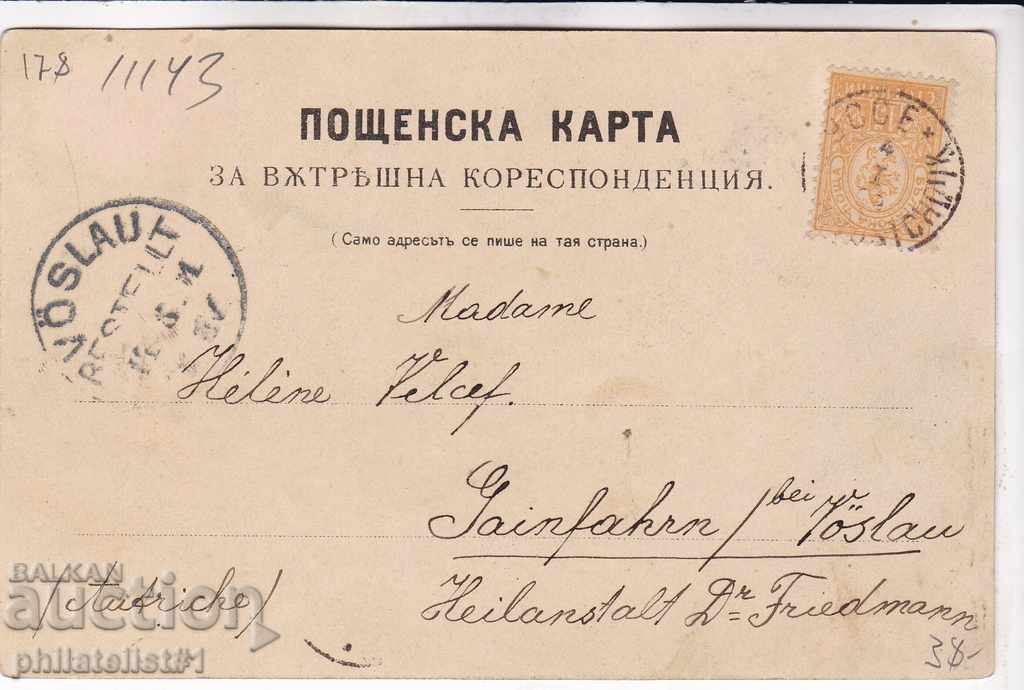 178 11143
ПОЩЕНСКА КАРТА
ЗА ВѪТРѢШНА КОРЕСПОНДЕНЦИЯ.
(Само адресътъ се пише на тая страна.)
VÖSLAU
BESTELLT
Madame
Hélène Velcef.
Gainfahrn / bei Vöslau
Heilanstalt Dr Friedmann
/Autriche/
38-
BALKAN
auction
philatelist#1